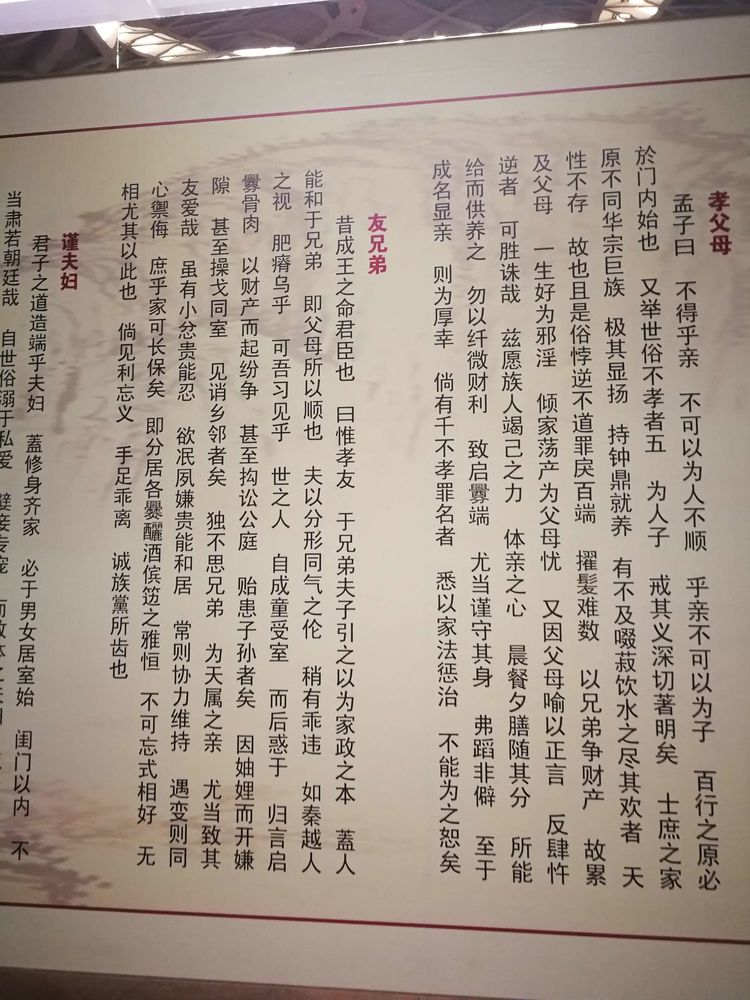 孝父母
孟子曰 不得乎亲 不可以为人不顺 乎亲不可以为子 百行之原必
於门内始也 又举世俗不孝者五 为人子 戒其义深切著明矣 士庶之家
原不同华宗巨族 极其显扬 持钟鼎就养 有不及啜菽饮水之尽其欢者 天
性不存 故也且是俗悖逆不道罪戾百端 擢髪难数 以兄弟争财产 故累
及父母 一生好为邪淫 倾家荡产为父母忧 又因父母喻以正言 反肆忤
逆者 可胜诛哉 兹愿族人竭己之力 体亲之心 晨餐夕膳随其分 所能
给而供养之 勿以纤微财利 致启釁端 尤当谨守其身 弗蹈非僻 至于
成名显亲 则为厚幸 倘有千不孝罪名者 悉以家法惩治 不能为之恕矣
友兄弟
昔成王之命君臣也 曰惟孝友 于兄弟夫子引之以为家政之本 蓋人
能和于兄弟 即父母所以顺也 夫以分形同气之伦 稍有乖违 如秦越人
之视 肥瘠乌乎 可吾习见乎 世之人 自成童受室 而后惑于 归言启
釁骨肉 以财产而起纷争 甚至抅讼公庭 贻患子孙者矣 因妯娌而开嫌
隙 甚至操戈同室 见诮乡邻者矣 独不思兄弟 为天属之亲 尤当致其
友爱哉 虽有小忿贵能忍 欲泯夙嫌贵能和居 常则协力维持 遇变则同
心禦侮 庶乎家可长保矣 即分居各爨釃酒傧笾之雅恒 不可忘式相好 无
相尤其以此也 倘见利忘义 手足乖离 诚族黨所齿也
谨夫妇
君子之道造端乎夫妇 蓋修身齐家 必于男女居室始 闺门以内 不
当肃若朝廷哉 自世俗溺于私爱 嬖妾专宠